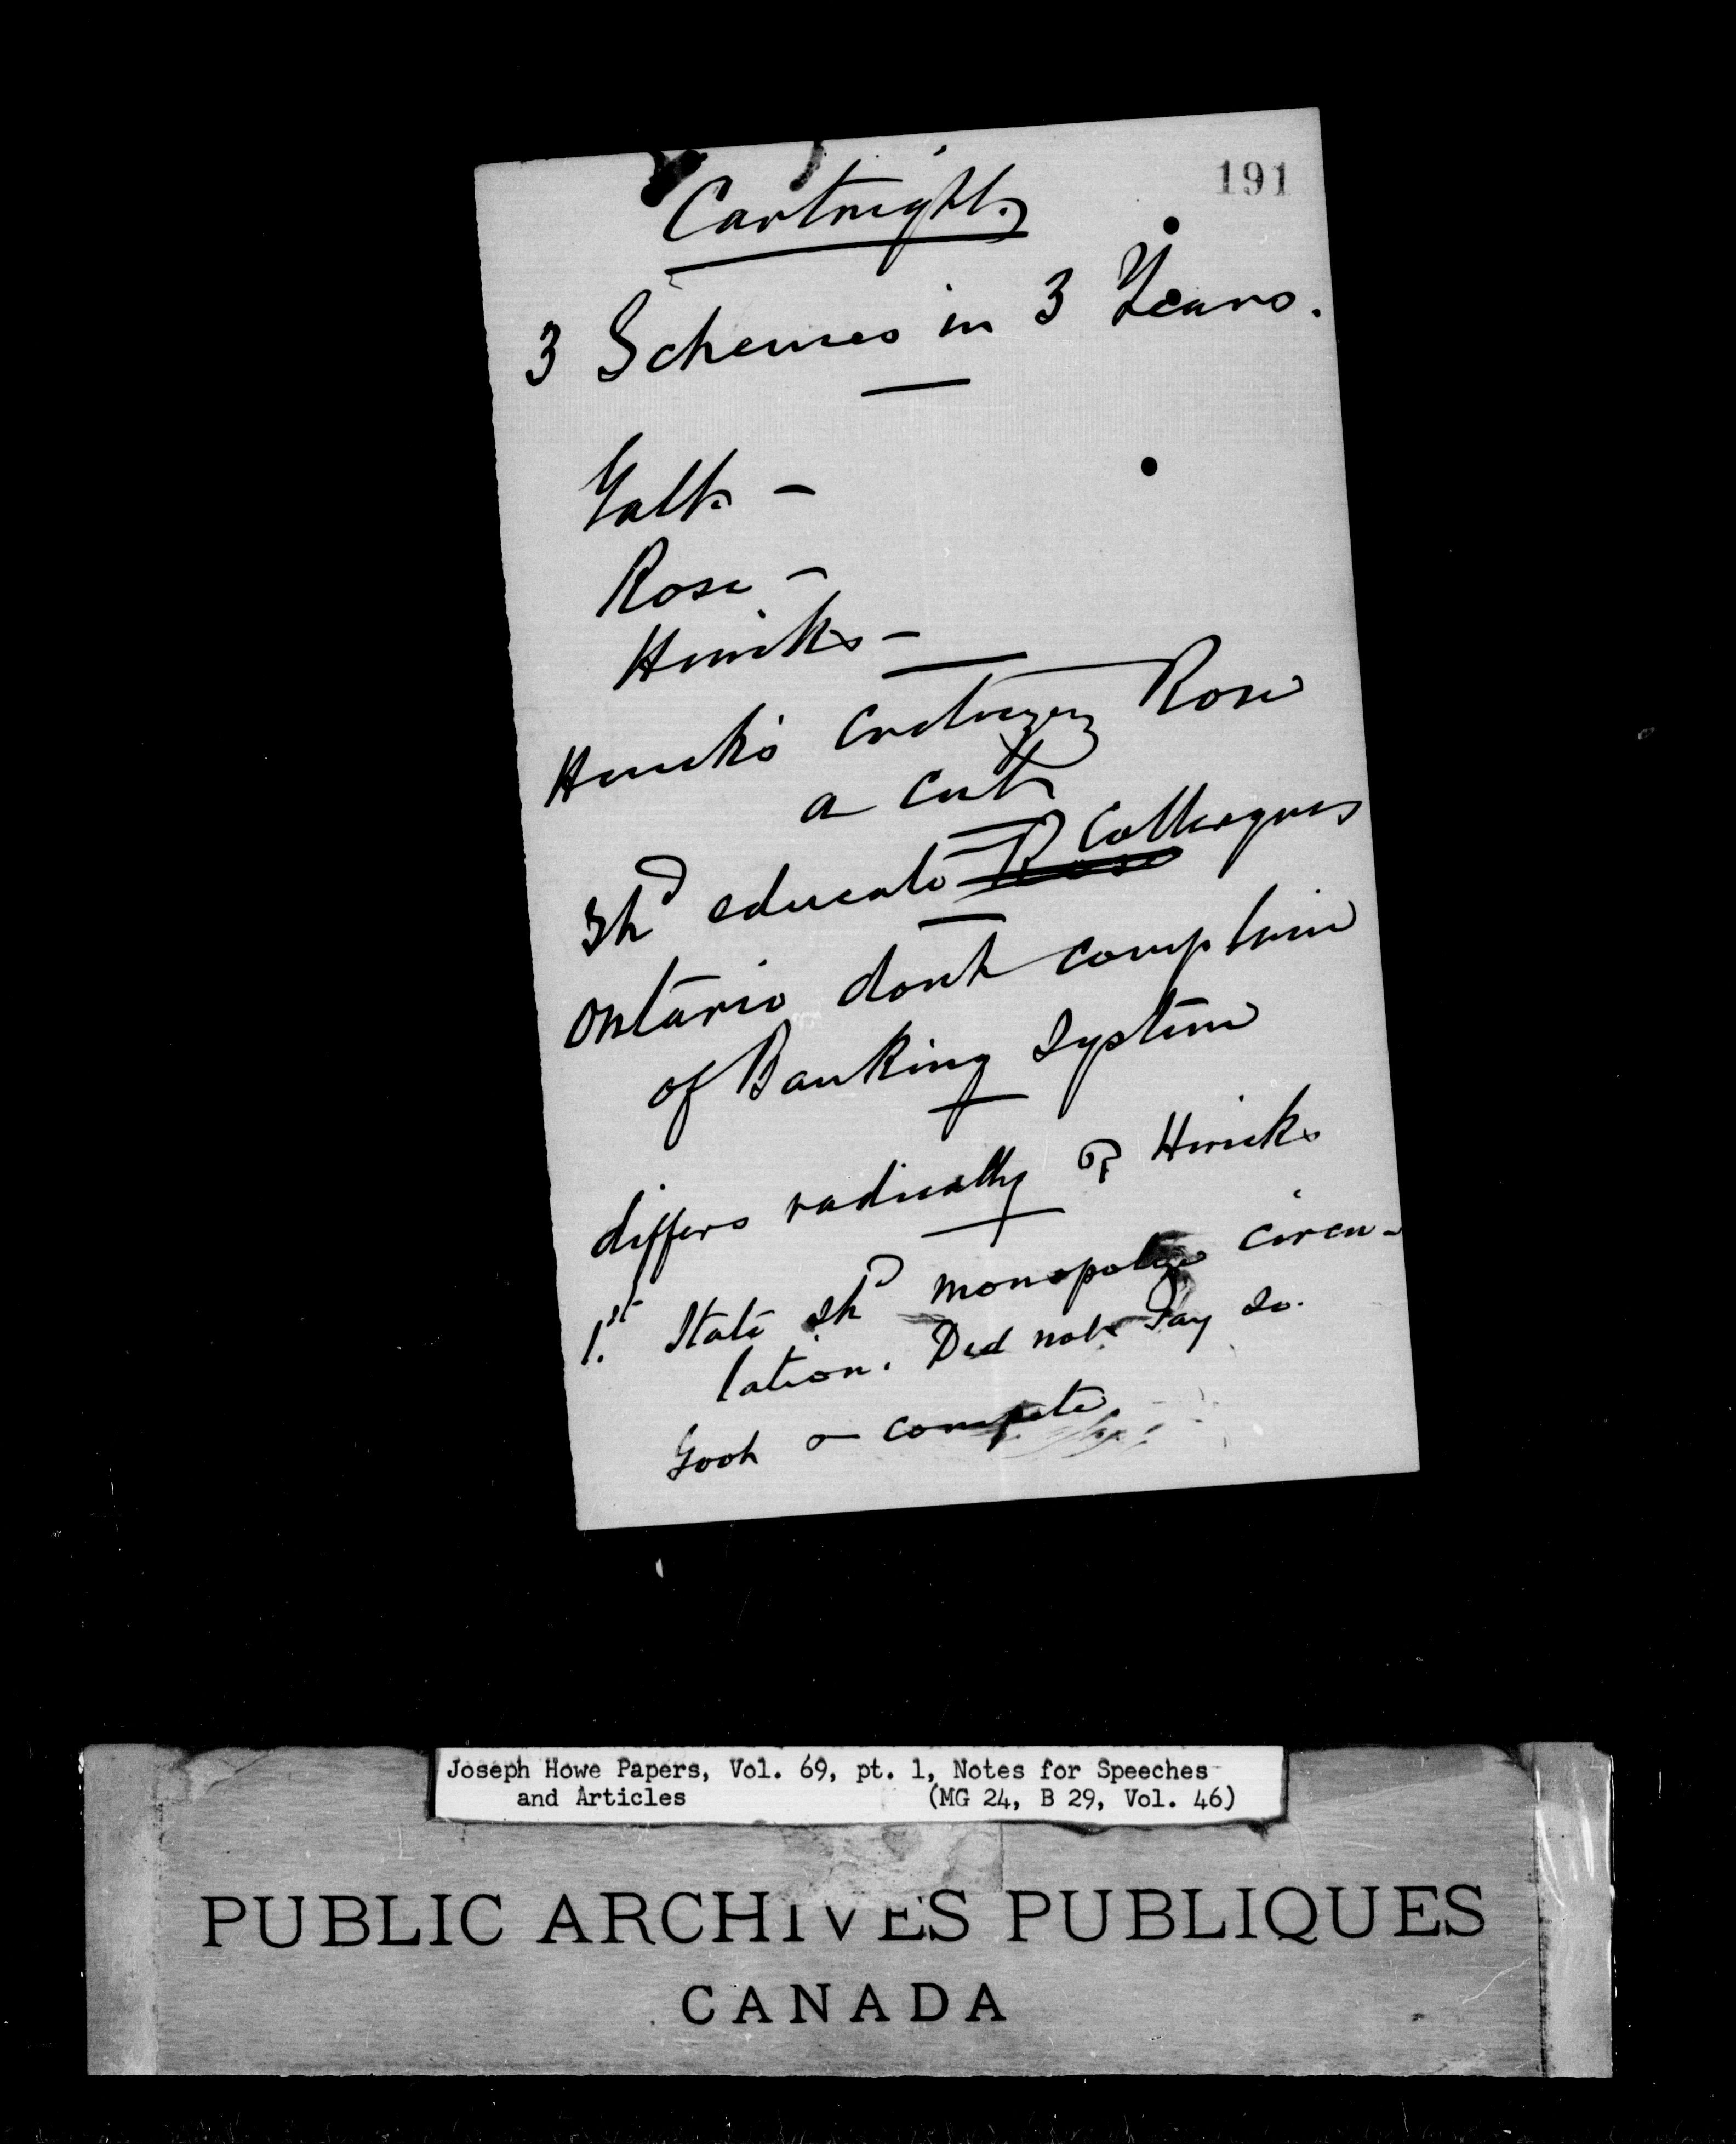 191
Cartright
3 Schemes in 3 Years.
Galt –
Rose –
Hincks –
Hincks Rose
a
Shd educate Rose Colleagues
Ontario dont complain
of Banking System
differs radically Hincks
1.st State shd monopolize circu-
lation. Did not say so.
compete
Joseph Howe Papers, Vol. 69, pt. 1, Notes for Speeches
and Articles (MG 24, B 29, Vol. 46)
PUBLIC ARCHIVES PUBLIQUES
CANADA